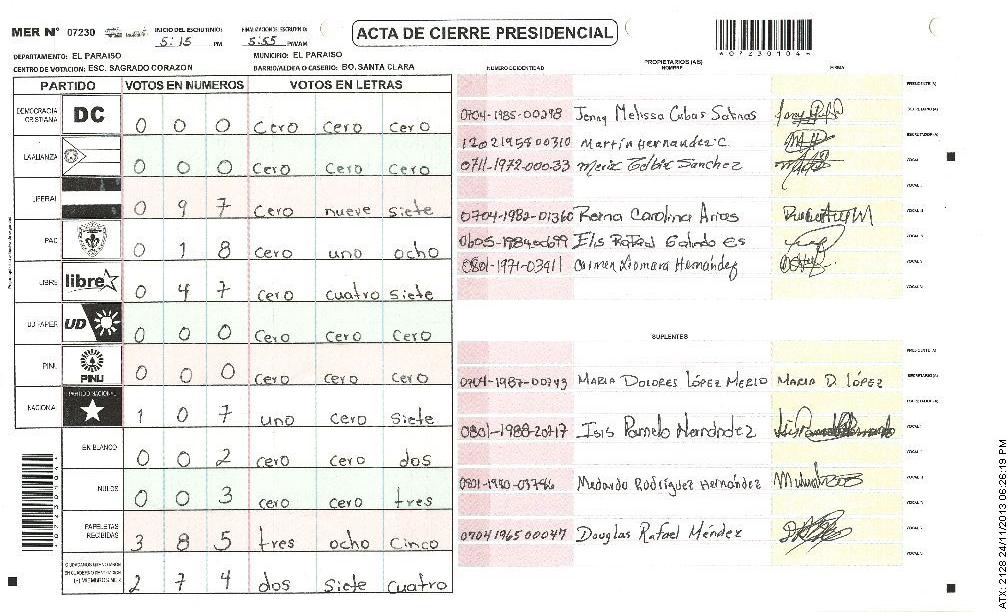 MER Nº 07230
INICIO DEL ESCRUTINIO: 5:15 PM
FINALIZACION ESCRUTINIO: 5:55 PM/AM
ACTA DE CIERRE PRESIDENCIAL
072301044
DEPARTAMENTO: EL PARAISO
MUNICIPIO: EL PARAISO
CENTRO DE VOTACION: ESC. SAGRADO CORAZON
BARRIO/ALDEA O CASERIO: BO. SANTA CLARA
PARTIDO VOTOS EN NUMEROS VOTOS EN LETRAS
DEMOCRACIA CRISTIANA DC 0 0 0 cero cero cero
LA ALIANZA 0 0 0 cero cero cero
LIBERAL 0 9 7 cero nueve siete
PAC 0 1 8 cero uno ocho
LIBRE libre 0 4 7 cero cuatro siete
UD FAPER UD 0 0 0 cero cero cero
PINU PINU 0 0 0 cero cero cero
NACIONAL PARTIDO NACIONAL 1 0 7 uno cero siete
EN BLANCO 0 0 2 cero cero dos
NULOS 0 0 3 cero cero tres
PAPELETAS RECIBIDAS 3 8 5 tres ocho cinco
2 7 4 dos siete cuatro
NUMERO IDENTIDAD
PROPIETARIOS (AS)
NOMBRE
FIRMA
PRESIDENTE (A)
0704-1985-00298 Jenny Melissa Cubas Salinas SECRETARIO (A)
1202195800310 Martín Hernandez C.
0711-1972-00033
0704-1982-01360 Reina Carolina Arias
0801-1971-03911 Carmen Xiomara Hernández
SUPLENTES
PRESIDENTE (A)
0704-1987-00743 MARIA DOLORES LÓPEZ MERLO MARIA D. LÓPEZ SECRETARIO (A)
0801-1988-20717 Isis Pamela Hernández
Medardo Rodríguez Hernández
0704196500047 Douglas Rafael Méndez
ATX: 2128 24/11/2013 06:26:19 PM